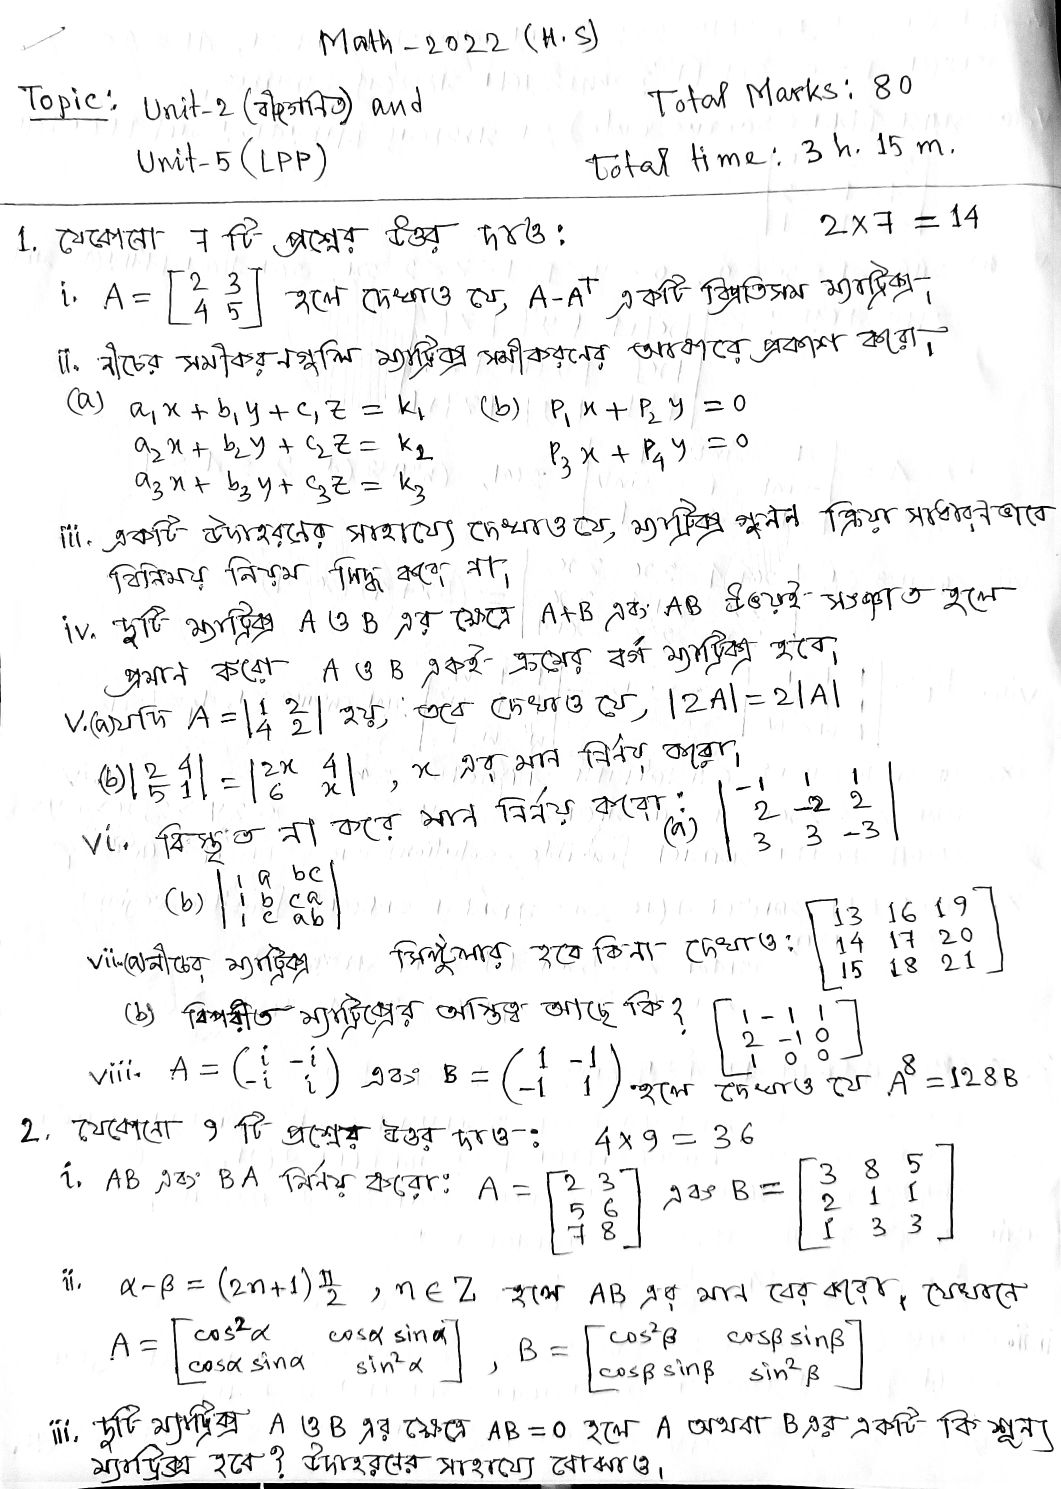 Math - 2022 (H.S)
Topic: Unit-2 (বীজগনিত) and
Total Marks: 80
Unit-5 (LPP)
Total time: 3 h. 15 m.
1. যেকোনো 7 টি প্রশ্নের উত্তর দাও: 2 x 7 = 14
i. A = [2 3 4 5] হলে দেখাও যে, A-Aᵀ একটি বিপ্রতিসম ম্যাট্রিক্স।
ii. নীচের সমীকরণগুলি ম্যাট্রিক্স সমীকরনের আকারে প্রকাশ করো।
(a) a₁x + b₁y + c₁z = k₁ (b) P₁x + P₂y = 0
a₂x + b₂y + c₂z = k₂ P₃x + P₄y = 0
a₃x + b₃y + c₃z = k₃
iii. একটি উদাহরণের সাহায্যে দেখাও যে, ম্যাট্রিক্স গুনন ক্রিয়া সাধারনভাবে
বিনিময় নিয়ম সিদ্ধ করে না।
iv. দুটি ম্যাট্রিক্স A ও B এর ক্ষেত্রে A+B এবং AB উভয়ই সংজ্ঞাত হলে
প্রমান করো A ও B একই ক্রমের বর্গ ম্যাট্রিক্স হবে।
v.(a) যদি A = |1 2 4 2| হয়, তবে দেখাও যে, |2A| = 2|A|
(b) |2 4 5 1| = |2x 4 6 x| , x এর মান নির্নয় করো।
vi. বিস্তৃত না করে মান নির্নয় করো: (a) |-1 1 1 2 -2 2 3 3 -3|
(b) |1 a bc 1 b ca 1 c ab|
vii.(a) নীচের ম্যাট্রিক্স সিঙ্গুলার হবে কিনা দেখাও: [13 16 19 14 17 20 15 18 21]
(b) বিপরীত ম্যাট্রিক্সের অস্তিত্ব আছে কি? [1 -1 1 2 -1 0 1 0 0]
viii. A = (i -i -i i) এবং B = (1 -1 -1 1) হলে দেখাও যে A⁸ = 128B
2. যেকোনো 9 টি প্রশ্নের উত্তর দাও: 4 x 9 = 36
i. AB এবং BA নির্নয় করো: A = [2 3 5 6 7 8] এবং B = [3 8 5 2 1 1 1 3 3]
ii. α-β = (2n+1) π/2 , n ∈ Z হলে AB এর মান বের করো, যেখানে
A = [cos²α cosα sinα cosα sinα sin²α] , B = [cos²β cosβ sinβ cosβ sinβ sin²β]
iii. দুটি ম্যাট্রিক্স A ও B এর ক্ষেত্রে AB = 0 হলে A অথবা B এর একটি কি শূন্য
ম্যাট্রিক্স হবে? উদাহরণের সাহায্যে বোঝাও।